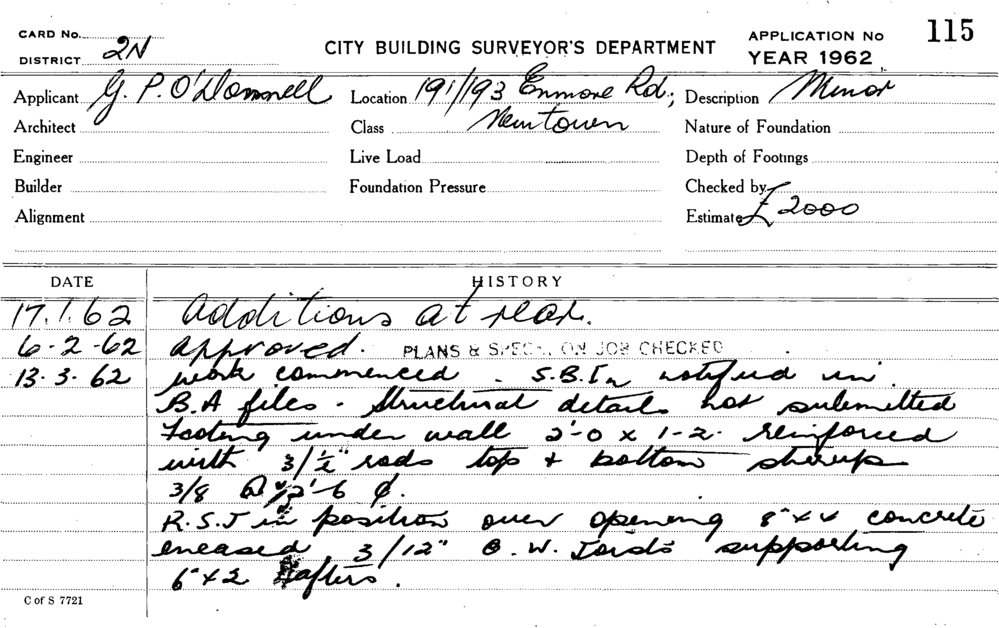 CARD No. APPLICATION No 115
DISTRICT 2N CITY BUILDING SURVEYOR'S DEPARTMENT YEAR 1962
Applicant G. P. O'Donnell Location 191/193 Enmore Rd; Description Minor
Architect Class Newtown Nature of Foundation
Engineer Live Load Depth of Footings
Builder Foundation Pressure Checked by
Alignment Estimate £2000
DATE HISTORY
17.1.62 Additions at rear.
6-2-62 Approved. PLANS & SPECS. ON JOB CHECKED
13.3.62 work commenced. S.B.I. notified in
B.A files. Structural details not submitted
Footing under wall 2'-0 x 1-2. reinforced
with 3/½" rods top + bottom stirrups
3/8 @ 2'-6
R.S.J in position over opening 8" x 4 concrete
encased, 3/12" O.W. supporting
6"x2 Rafters.
C of S 7721